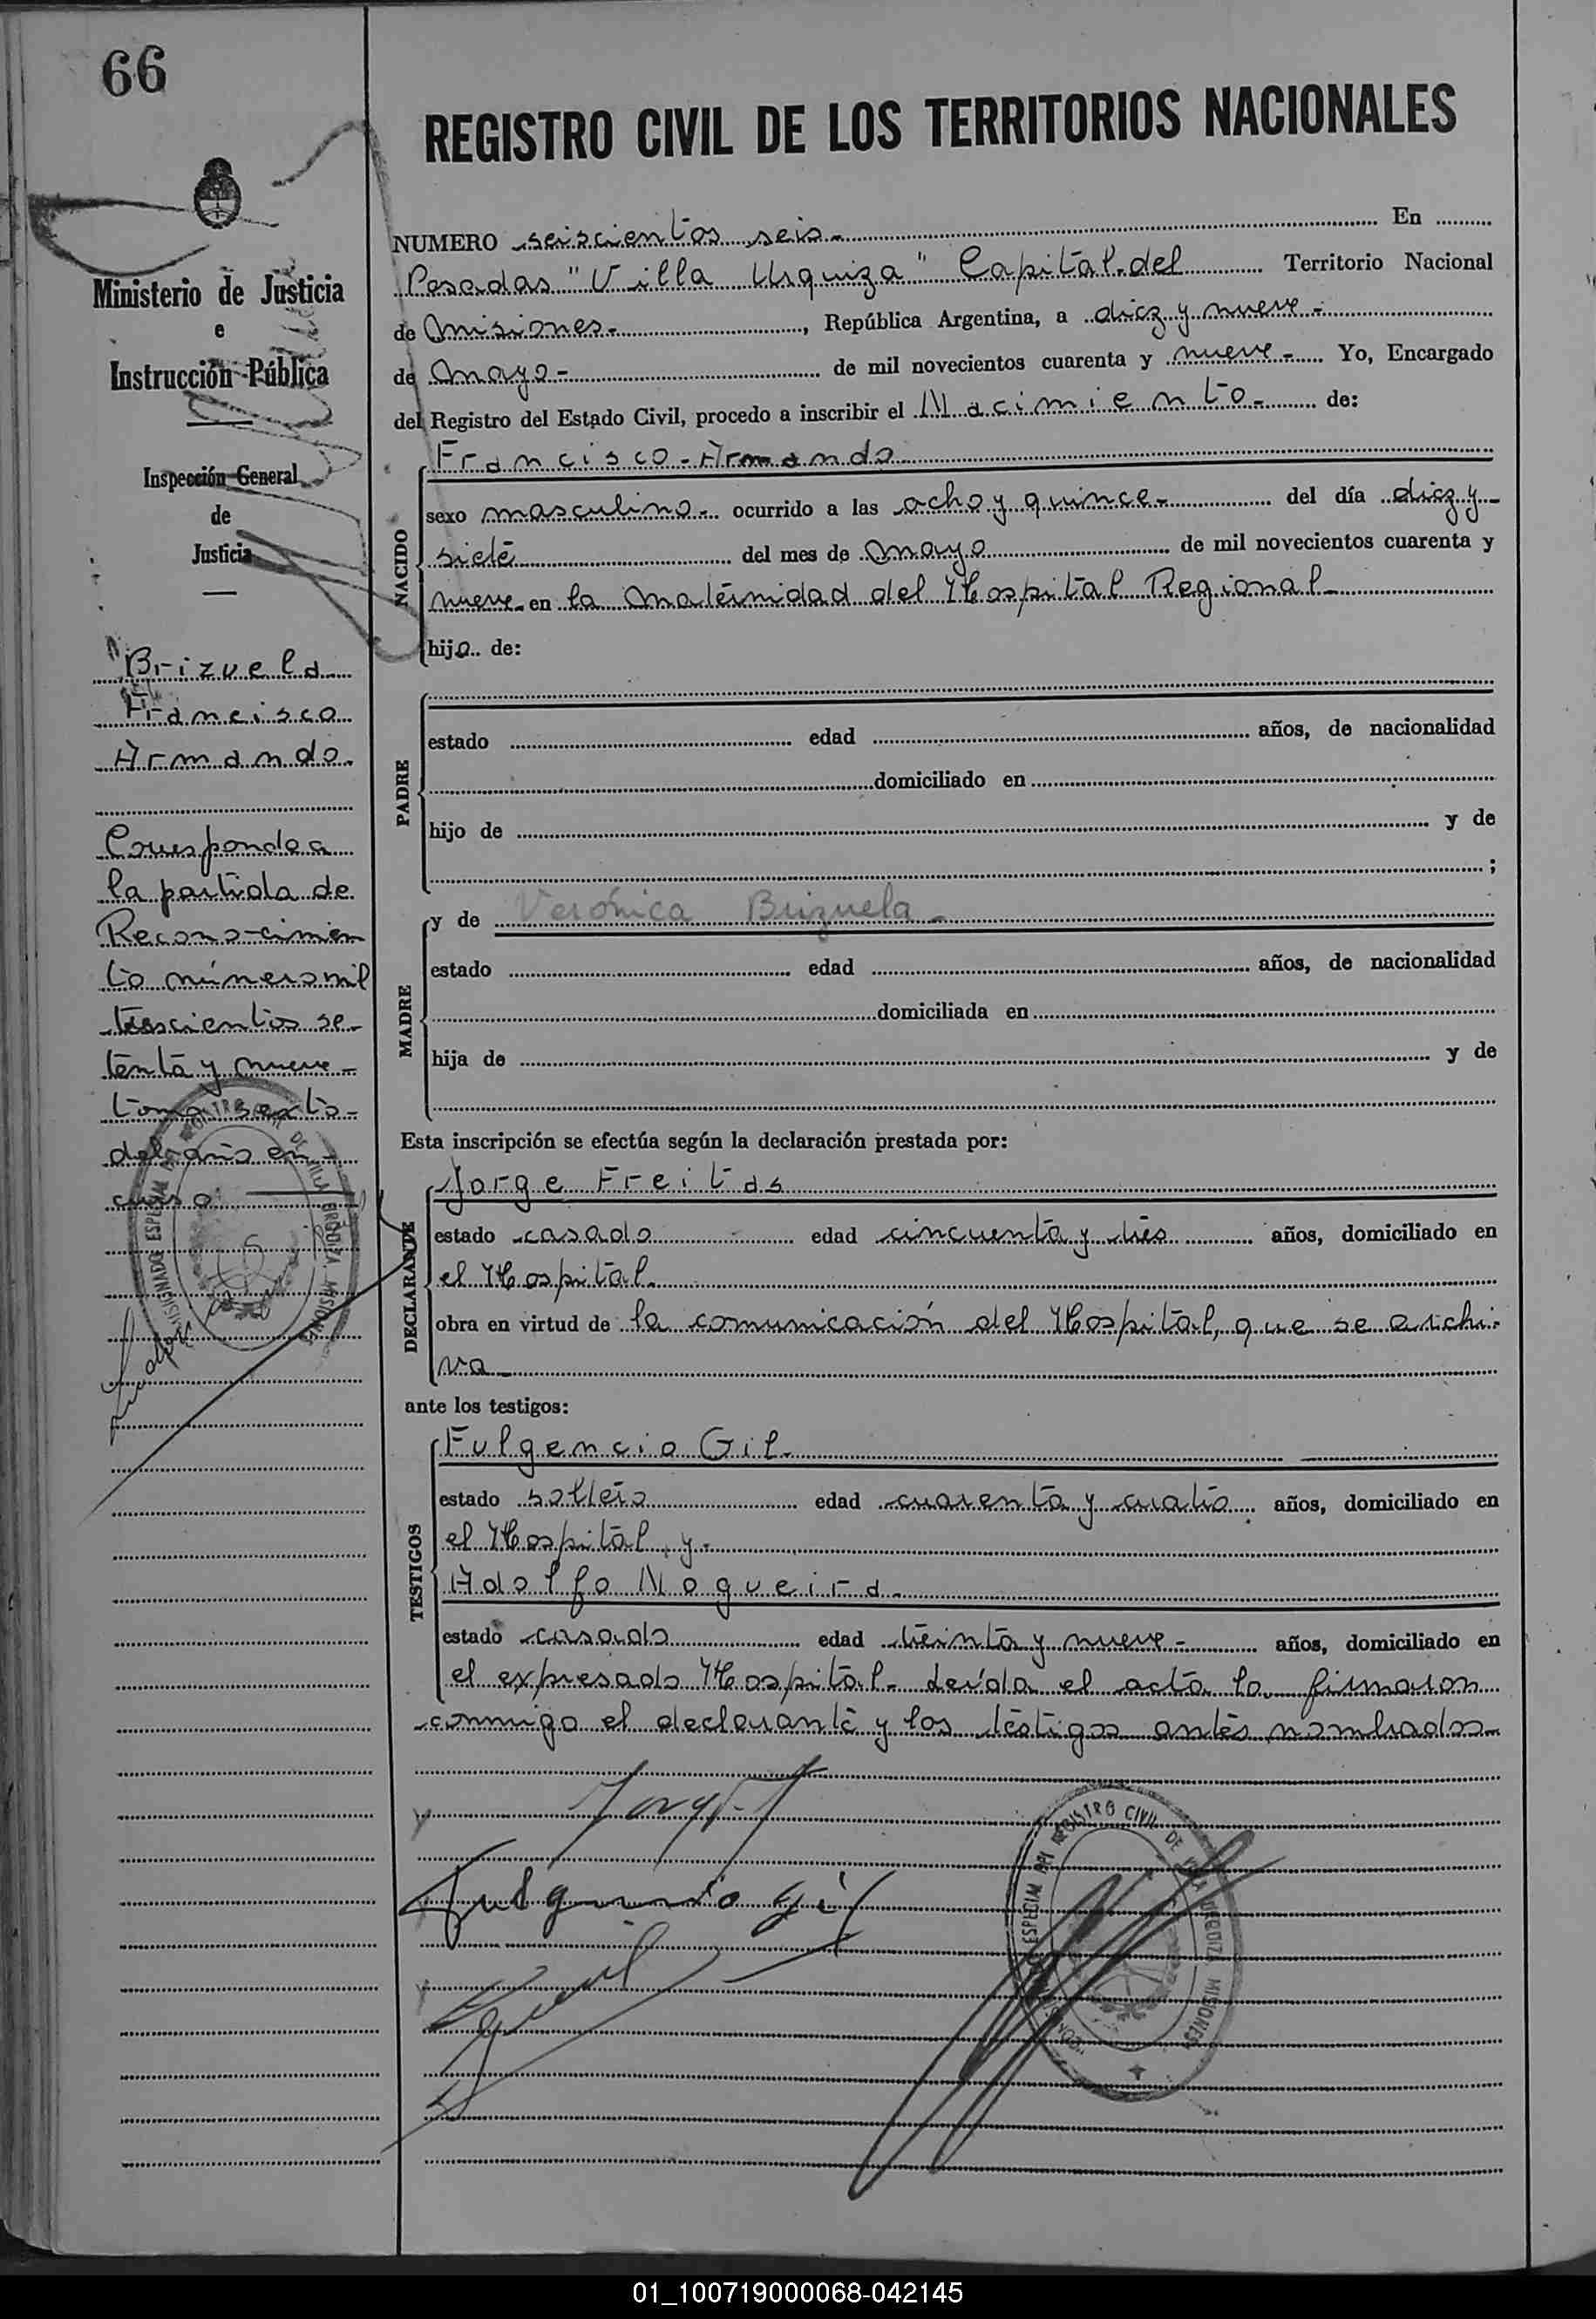 66
REGISTRO CIVIL DE LOS TERRITORIOS NACIONALES
Ministerio de Justicia
e
Instrucción Pública
Inspección General
de
Justicia
Brizuela
Francisco
Armando.
Corresponde a
la partida de
Recono-cimien
to número mil
trescientos se-
tenta y nueve-
tomo sexto-
del año en-
curso
NUMERO seiscientos seis- En
Posadas "Villa Urquiza" Capital del Territorio Nacional
de Misiones-, República Argentina, a diez y nueve-
de Mayo- de mil novecientos cuarenta y nueve- Yo, Encargado
del Registro del Estado Civil, procedo a inscribir el Nacimiento- de:
NACIDO
Francisco-Armando
sexo masculino- ocurrido a las ocho y quince- del día diez y-
siete del mes de Mayo de mil novecientos cuarenta y
nueve- en la Maternidad del Hospital Regional-
hijo de:
PADRE
estado edad años, de nacionalidad
domiciliado en
hijo de y de
;
MADRE
y de Verónica Brizuela-
estado edad años, de nacionalidad
domiciliada en
hija de y de
Esta inscripción se efectúa según la declaración prestada por:
DECLARANTE
Jorge Freitas
estado casado edad cincuenta y tres años, domiciliado en
el Hospital.
obra en virtud de la comunicación del Hospital, que se archi-
va-
ante los testigos:
TESTIGOS
Fulgencio Gil-
estado soltero edad cuarenta y cuatro años, domiciliado en
el Hospital, y-
Adolfo Nogueira-
estado casado edad treinta y nueve- años, domiciliado en
el expresado Hospital- Leída el acta la firmaron
conmigo el declarante y los testigos antes nombrados-
Fulgencio Gil
REGISTRO CIVIL DE VILLA URQUIZA MISIONES
01_100719000068-042145